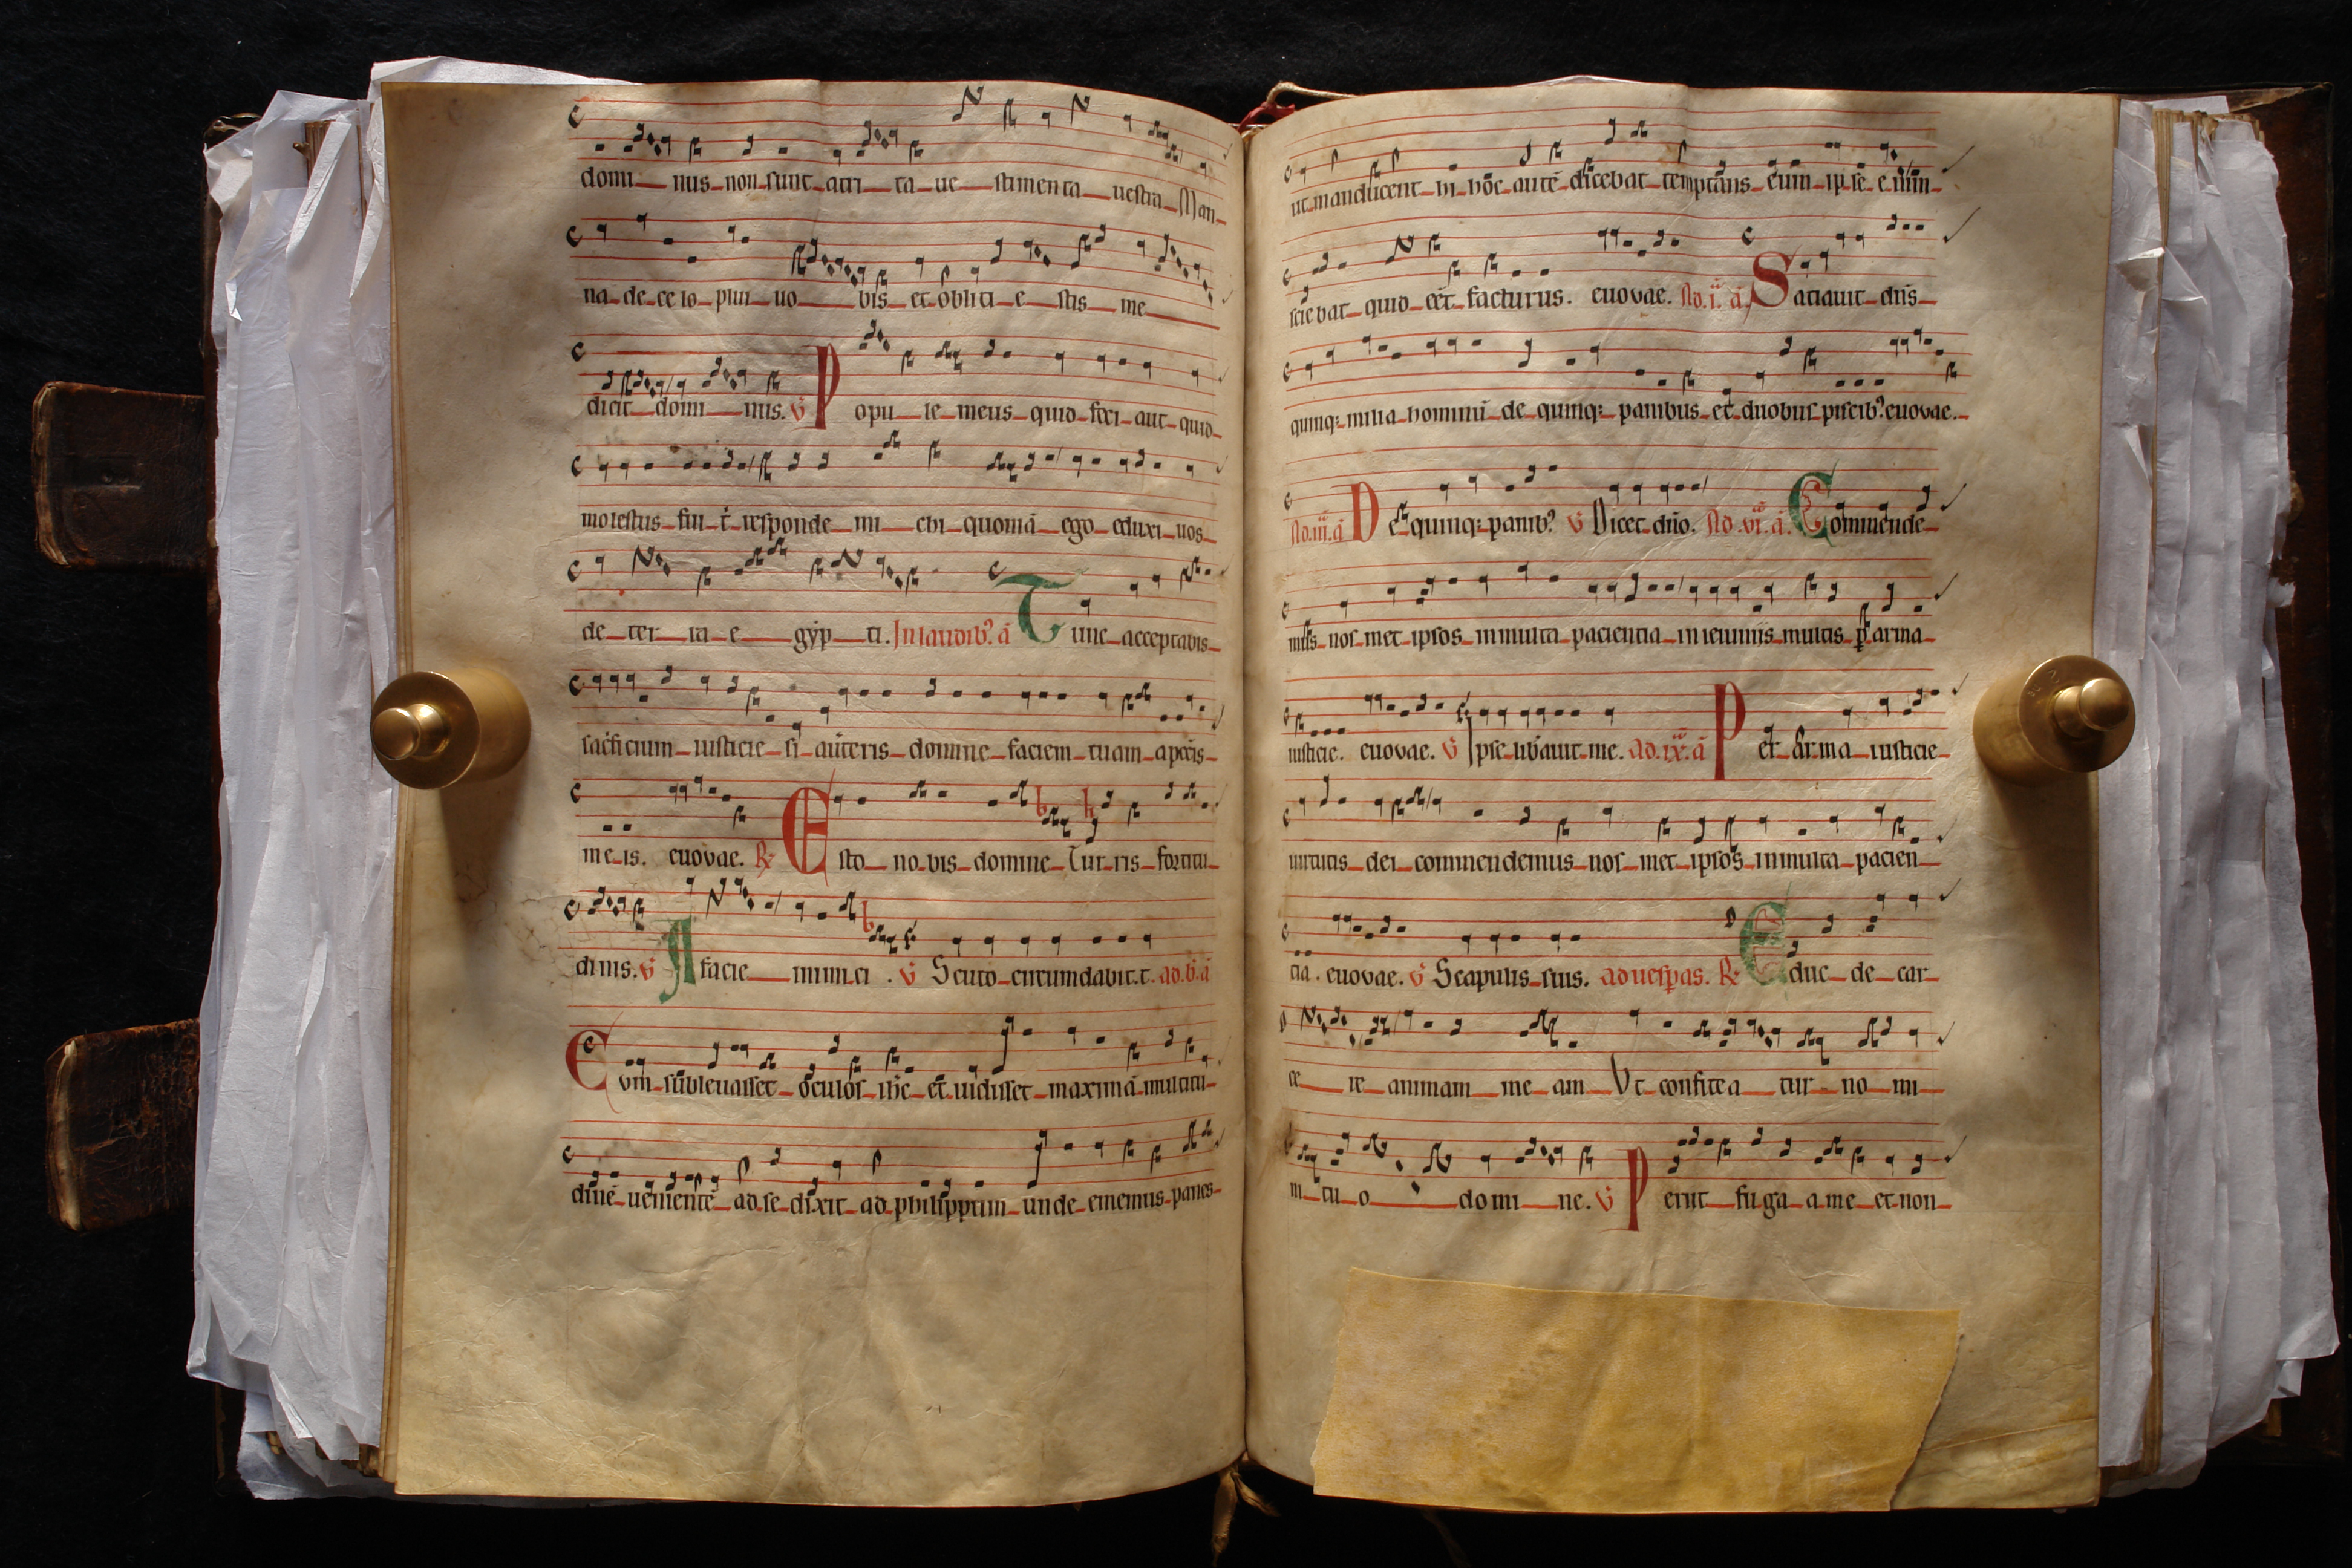 domi nus non sunt attri ta ue stimenta uestra Man
na de ce lo plui uo bis et obliti e stis me
dicit domi nus. V Popu le meus quid feci aut quid
molestus fui t̄ responde mi chi quoniā ego eduxi uos
de ter ra e gyp ti. In laudib? ā Tunc acceptabis
iusticie si domine faciem tuam
me is. euovae. R Esto no bis domine Tur ris fortitu
dinis. V A facie inimi ci . V Scuto circumdabit. t. ad. b. ā
Cum subleuasset oculos ih̄c et uidisset maximā multitu
dinē uenientē ad se dixit ad philippum unde ememus panes
ut manducent in hōc autē dicebat temptans eum ipse enim
sciebat quid eēt facturus. euovae. Ad. i. ā Satiauit dn̄s
quinq; milia hominū de quinq; panibus et duobus piscib? euovae.
Ad. iii. ā De quinq; panib? V Dicet dn̄o. Ad. vi. ā. Commende
nos met ipsos in multa pacientia in ieiuniis multis p̱ arma
iusticie. euovae. V Ipse lib̄auit me. ad. ix. ā Per arma iusticie
uirtutis dei commendemus nos met ipsos in multa pacien
tia. euovae. V Scapulis suis. ad uesp̄as. R Educ de car
ce re animam me am Vt confitea tur no mi
ni tu o domi ne. V Periit fu ga a me et non